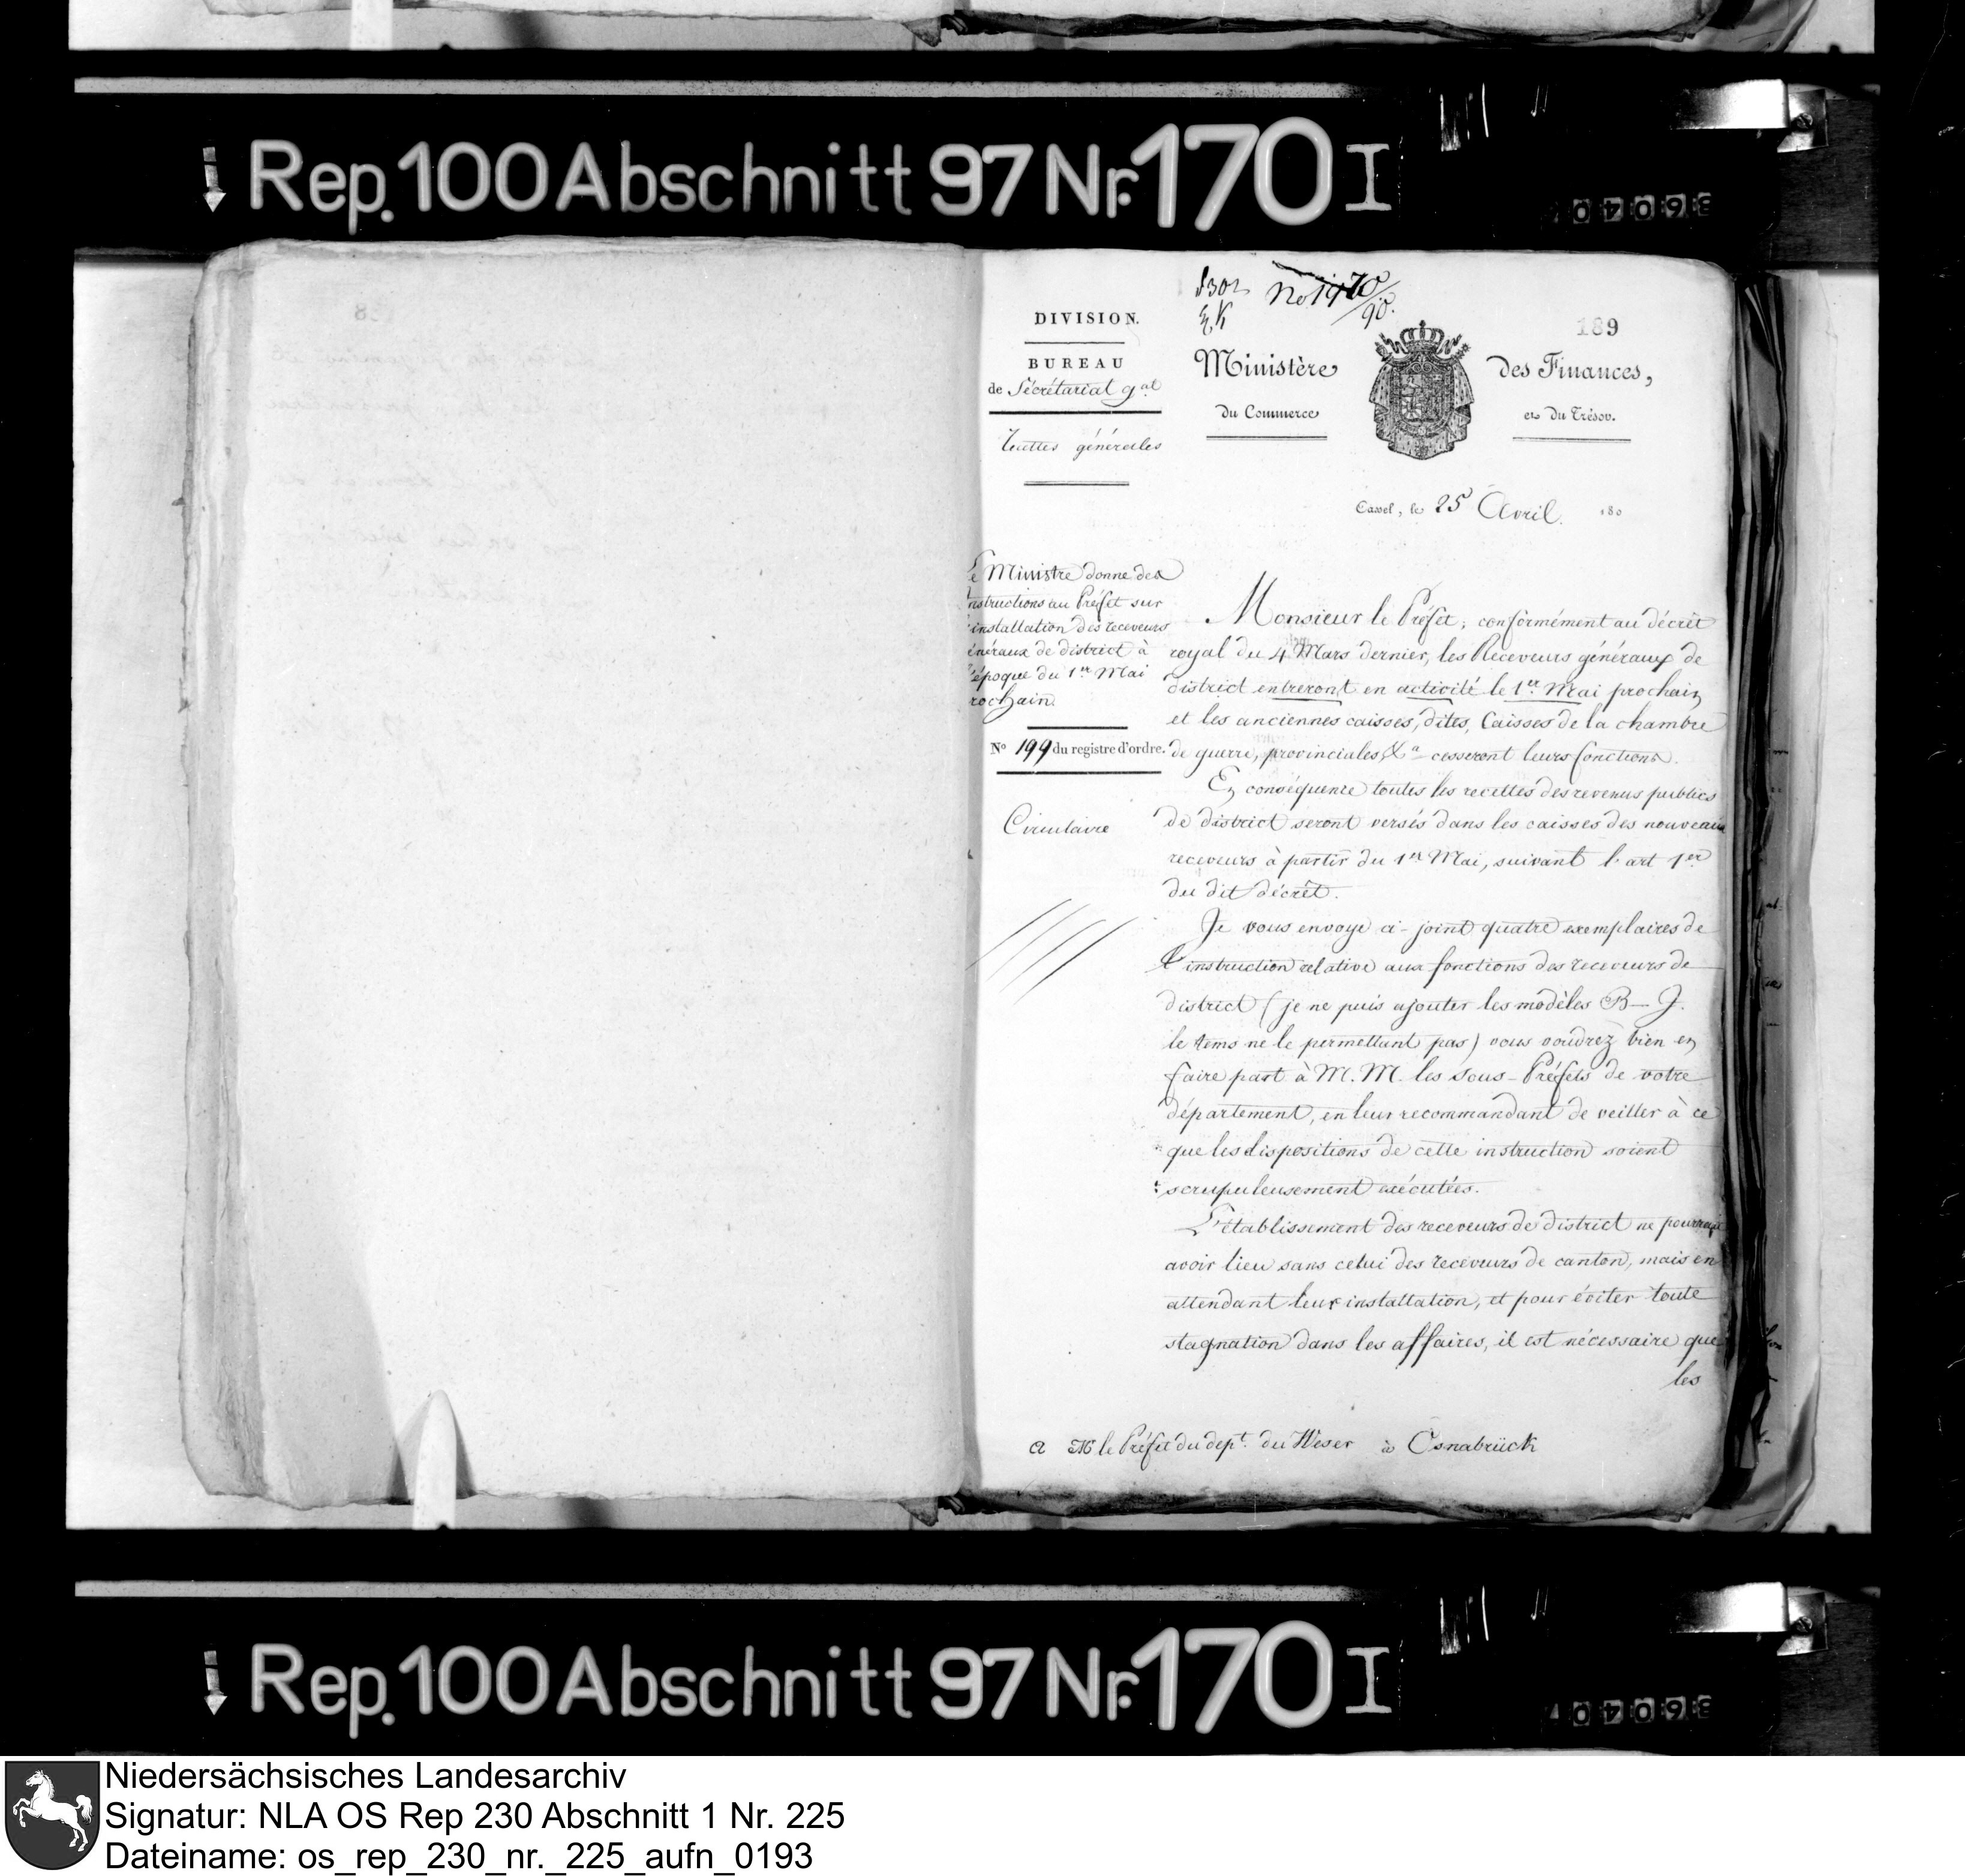 Rep. 100 Abschnitt 97 Nr. 170 I
189
No 1970/90.
DIVISION.
BUREAU
de Sécrétariat gal
générales
Ministère des Finances,
du Commerce et du Trésor.
Cassel, le 25 Avril. 180
Le Ministre donne des
instructions au Préfet sur
l'installation des receveurs
généraux de district à
l'époque du 1er Mai
prochain
No 199 du registre d'ordre.
Circulaire
Monsieur le Préfet, conformément au décrêt
royal du 4 Mars dernier, les Receveurs généraux de
district entreront en activité le 1er Mai prochain
et les anciennes caisses, dites, Caisses de la chambre
de guerre, provinciales, &a cesseront leurs fonctions.
En conséquence toutes les recettes des revenus publics
de district seront versés dans les caisses des nouveaux
receveurs à partir du 1er Mai, suivant l'art 1er
du dit décrêt.
Je vous envoye ci-joint quatre exemplaires de
l'instruction relative aux fonctions des receveurs de
district (je ne puis ajouter les modèles B-J.
le tems ne le permettant pas) vous voudrez bien en
faire part à M. M. les Sous-Préfets de votre
département, en leur recommandant de veiller à ce
que les dispositions de cette instruction soient
scrupuleusement exécutées.
L'établissement des receveurs de district ne pourrait
avoir lieu sans celui des receveurs de canton, mais en
attendant leur installation, et pour éviter toute
stagnation dans les affaires, il est nécessaire que
les
a M le Préfet du dept. du Weser à Osnabrück
Rep. 100 Abschnitt 97 Nr. 170 I
Niedersächsisches Landesarchiv
Signatur: NLA OS Rep 230 Abschnitt 1 Nr. 225
Dateiname: os_rep_230_nr._225_aufn_0193